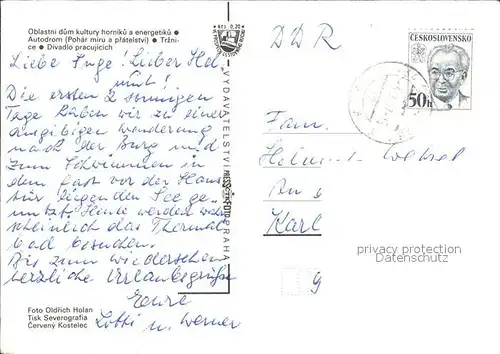 Oblastní dům kultury horníků a energetiků ●
Autodrom (Pohár míru a přátelství) ● Tržni-
ce ● Divadlo pracujících
Liebe Inge! Lieber Hel-
mut!
Die ersten 2 sonnigen
Tage haben wir zu einer
ausgibigen Wanderung
nach der Burg und
zum Schwimmen in
dem fast vor der Haus-
tür liegenden See ge-
nutzt. Heute werden wahr-
scheinlich das Thermal-
bad besuchen.
Bis zum Wiedersehen
herzliche Urlaubsgrüße
Eure
Lotti u. Werner
Foto Oldřich Holan
Tisk Severografia
Červený Kostelec
Kčs 0,20
VYDAVATELSTVÍ PRESSFOTO PRAHA
DDR
ČESKOSLOVENSKO
50h
Fam.
Helmut
Karl
privacy protection
Datenschutz
g